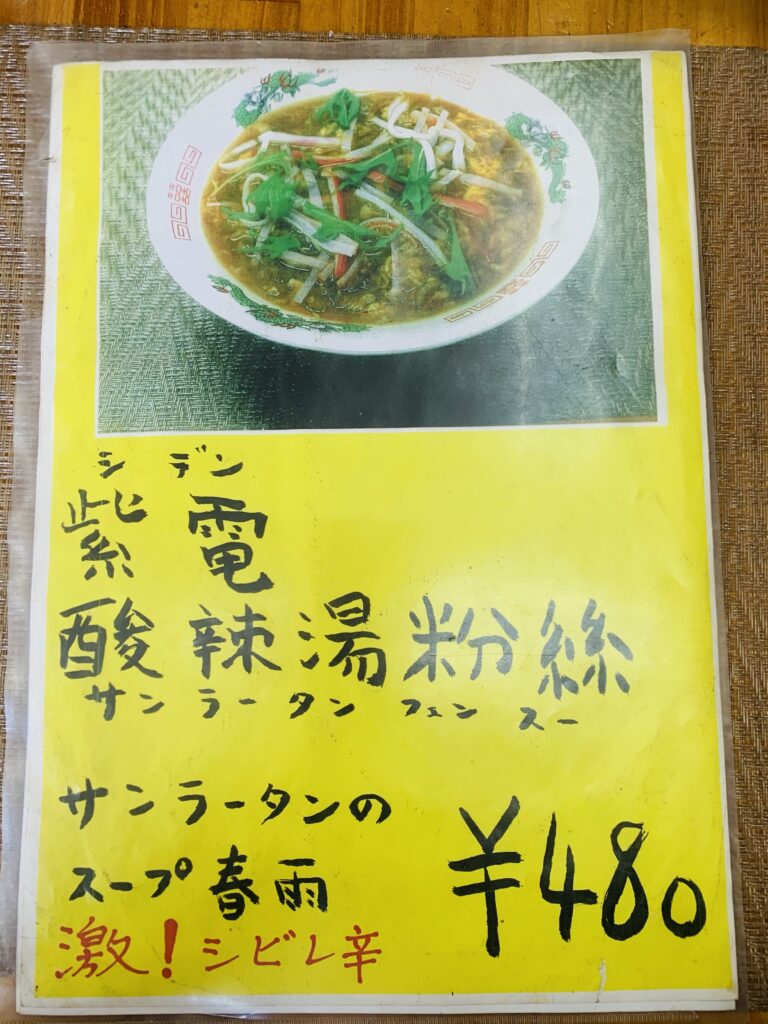 シデン
紫電
酸辣湯粉絲
サンラータンフェンスー
サンラータンの
スープ春雨
¥480
激!シビレ辛